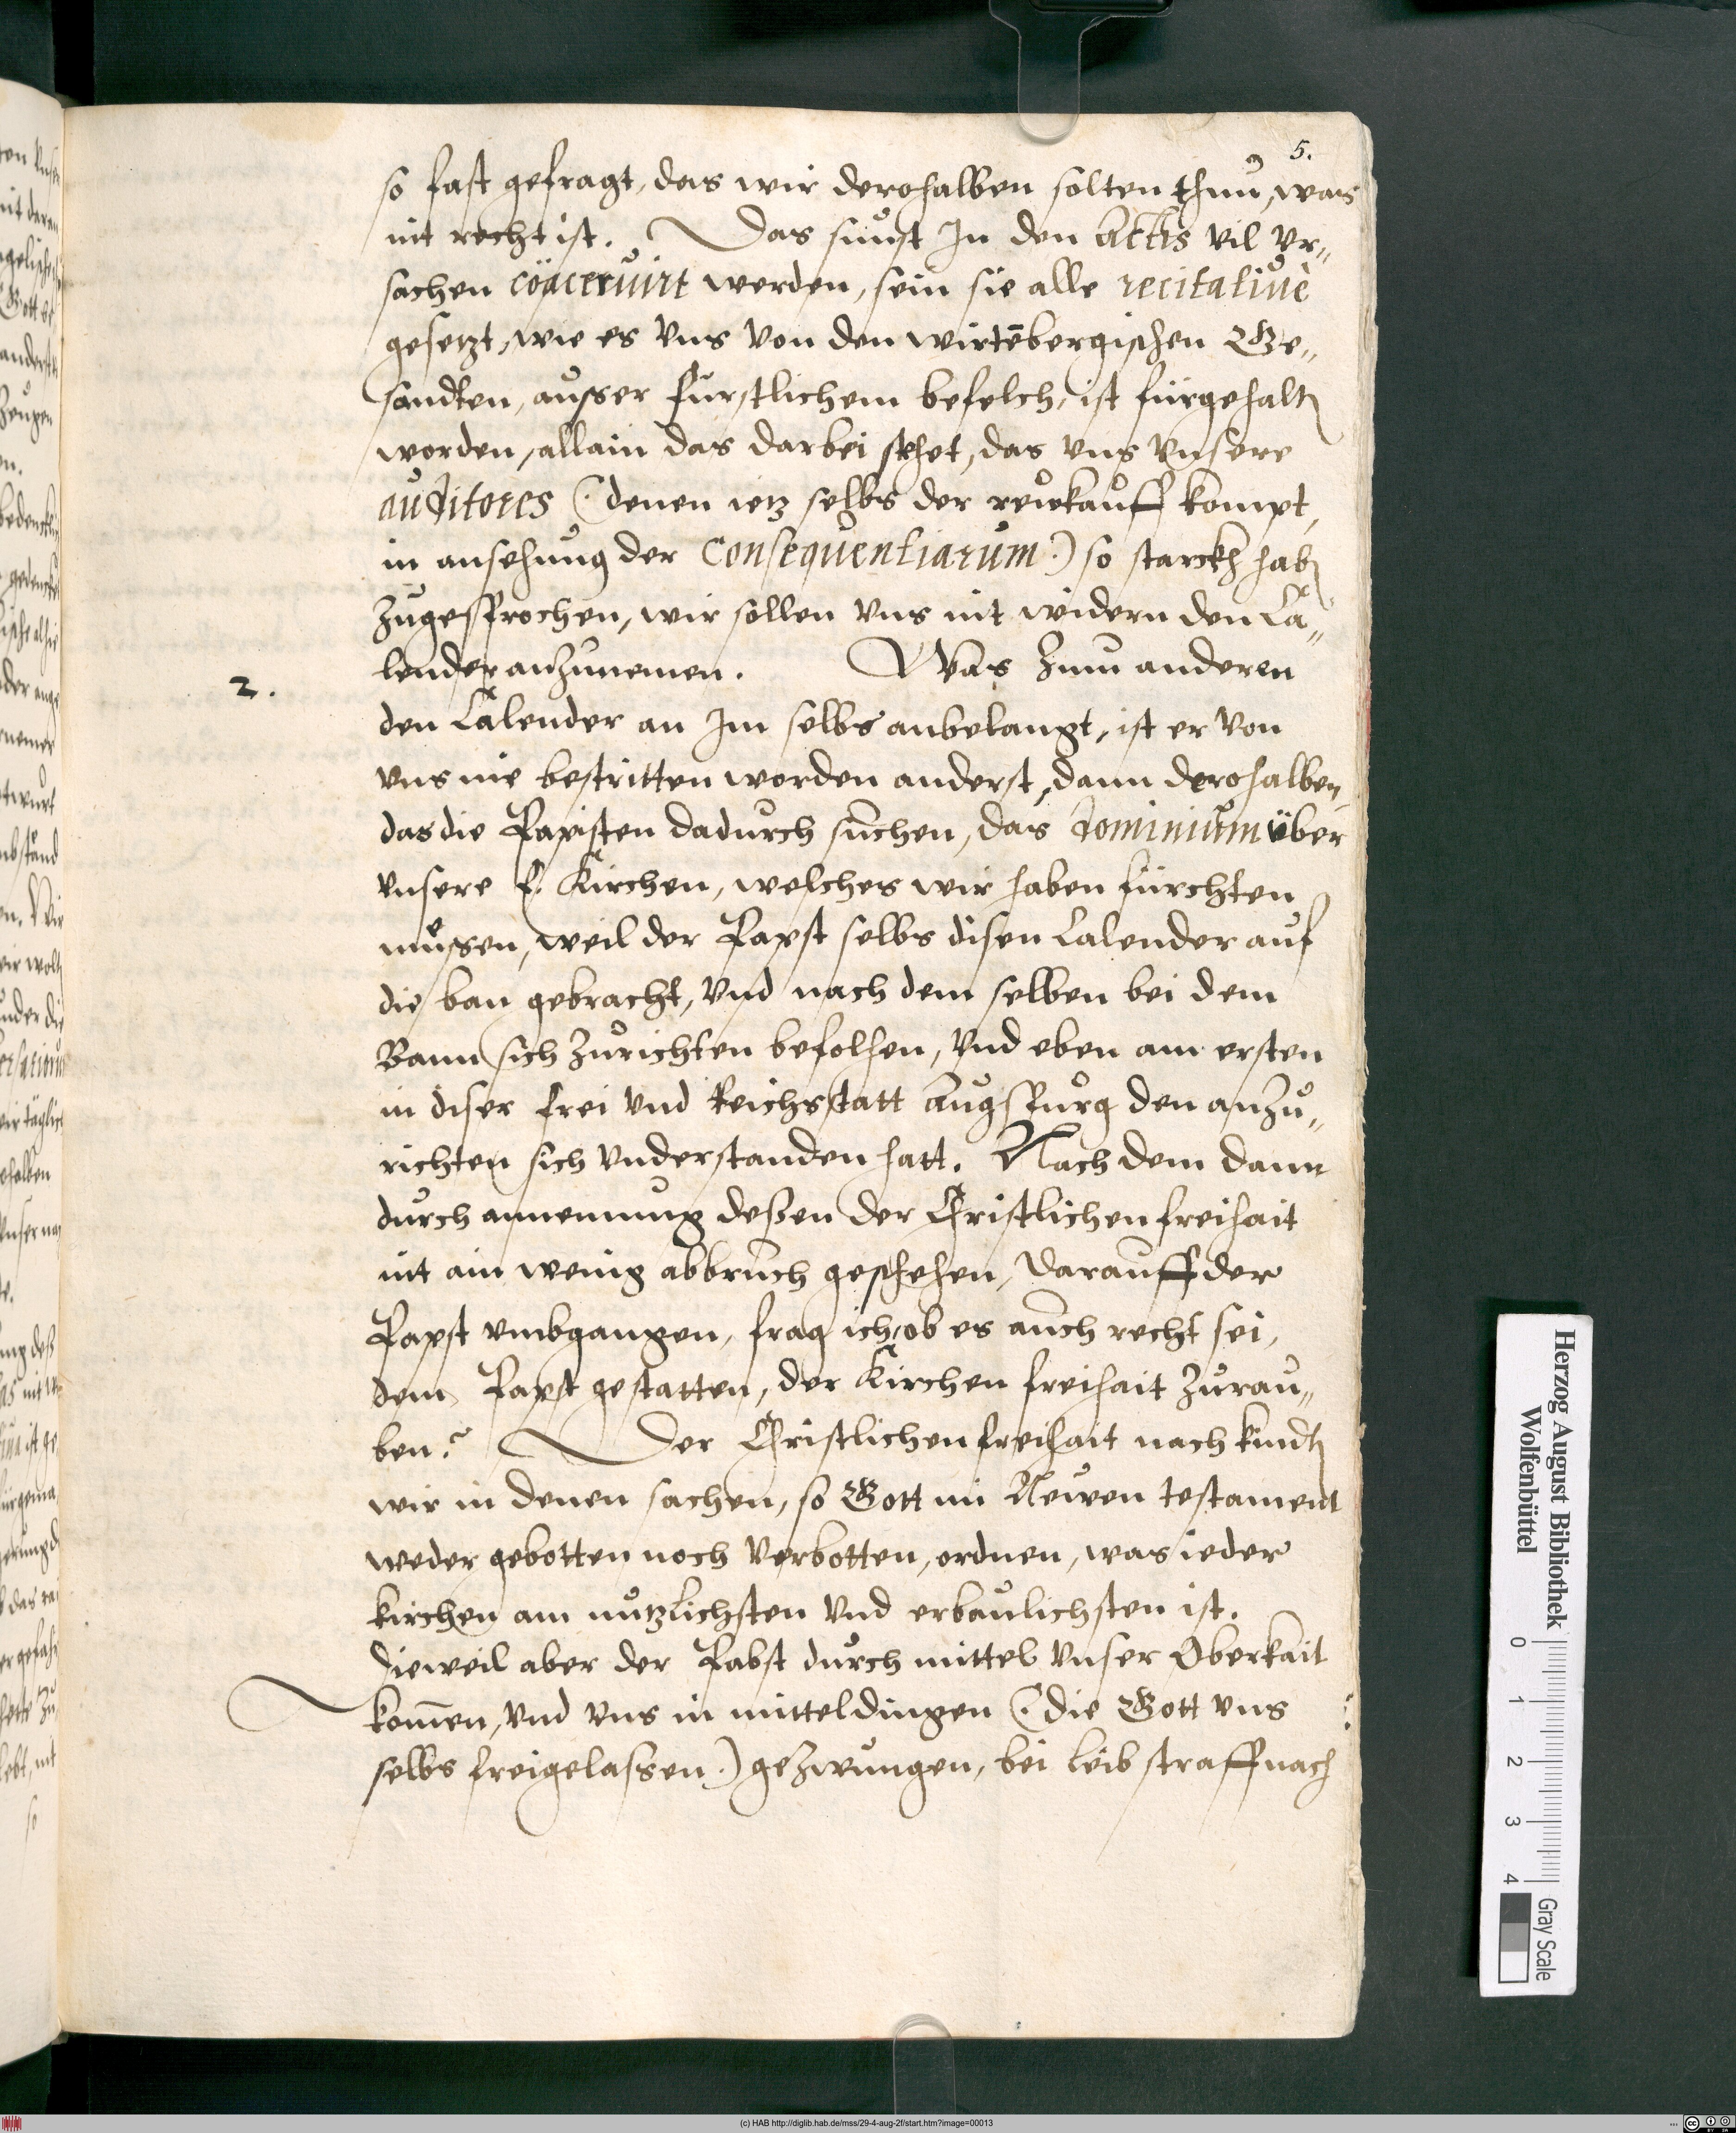 5.
so fast gefragt, das wir derohalben solten thun, was
nit recht ist. Das sunst In den Actis vil vr„
sachen cöaceruirt werden, sein sie alle recitatiuè
gesetzt, wie es vns von den wirtēbergischen Ge„
sandten, ausser fürstlichem befelch, ist fürgehaltē
worden, allain das darbei stehet, das vns vnsere
auditores (: denen ietz selbs der rewkauff kompt,
in ansehung der Consequentiarum :) so starckh habē
zugesprochen, wir sollen vns nit widern den Ca„
lender anzunemen. Was zum anderen
2.
den Calender an Im selbs anbelangt, ist er von
vns nie bestritten worden anderst, dann derohalben,
das die Papisten dadurch suchen, das dominium über
vnsere E. Kirchen, welches wir haben fürchten
müssen, weil der Papst selbs disen Calender auf
die ban gebracht, vnd nach dem selben bei dem
Bann sich zurichten befolhen, vnd eben am ersten
in diser frei vnd Reichsstatt Augspurg den anzu„
richten sich vnderstanden hatt. Nach dem dann
durch annemung deßen der Christlichen freihait
nit ain wenig abbruch geschehen, darauff der
Papst vmbgangen, frag ich, ob es auch recht sei,
dem Papst gestatten, der Kirchen freihait zurau„
ben? Der Christlichen freihait nach kundē
wir in denen sachen, so Gott im Newen testament
weder gebotten noch verbotten, ordnen, was ieder
kirchen am nutzlichsten vnd erbaulichsten ist.
dieweil aber der Pabst durch mittel vnser Oberkait
kom̄en, vnd vns in mitteldingen (: die Gott vns
selbs freigelassen :) gezwungen, bei leib straff nach
Herzog August Bibliothek
Wolfenbüttel
0 1 2 3 4
Gray Scale
(c) HAB http://diglib.hab.de/mss/29-4-aug-2f/start.htm?image=00013